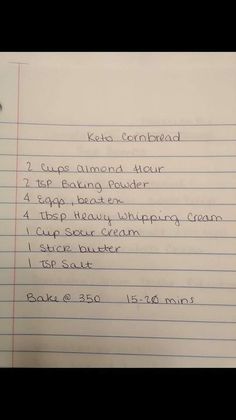 Keto Cornbread
2 cups almond flour
2 TSP Baking Powder
4 Eggs, beaten
4 Tbsp Heavy Whipping Cream
1 Cup Sour Cream
1 Stick butter
1 TSP Salt
Bake @ 350 15-20 mins